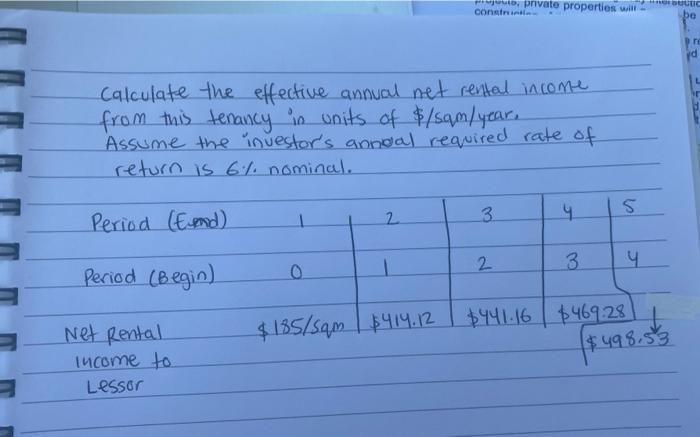 private properties will
be
Calculate the effective annual net rental income
from this tenancy in units of $/sqm/year.
Assume the investor's annual required rate of
return is 6% nominal.
Period (End) 1 2 3 4 5
Period (Begin) 0 1 2 3 4
Net Rental $185/sqm $414.12 $441.16 $469.28
income to $498.53
Lessor